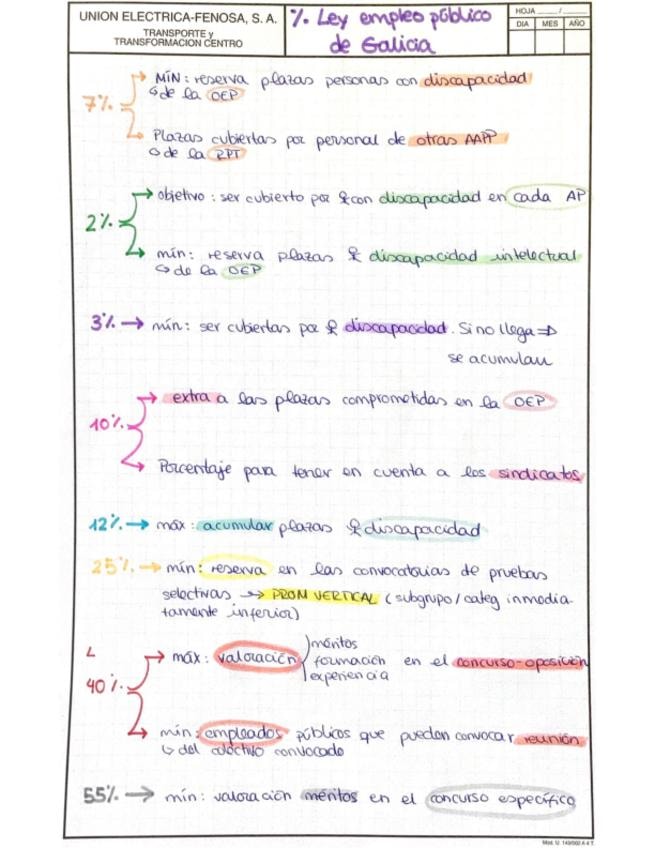 UNION ELECTRICA-FENOSA, S. A.
TRANSPORTE y
TRANSFORMACION CENTRO
% Ley empleo público
de Galicia
HOJA ____ / ____
DIA MES AÑO
7%
→ MÍN: reserva plazas personas con discapacidad
↳ de la OEP
→ Plazas cubiertas por personal de otras AAPP
↳ de la RPT
2%
→ objetivo: ser cubierto por con discapacidad en cada AP
→ mín: reserva plazas discapacidad intelectual
↳ de la OEP
3% → mín: ser cubiertas por discapacidad. Si no llega ⇒
se acumulan
10%
→ extra a las plazas comprometidas en la OEP
→ Porcentaje para tener en cuenta a los sindicatos
12% → máx: acumular plazas discapacidad
25% → mín: reserva en las convocatorias de pruebas
selectivas → PROM VERTICAL (subgrupo/categ inmedia-
tamente inferior)
40%
→ máx: valoración méritos
formación en el concurso-oposición
experiencia
→ mín: empleados públicos que pueden convocar reunión
↳ del colectivo convocado
55% → mín: valoración méritos en el concurso específico